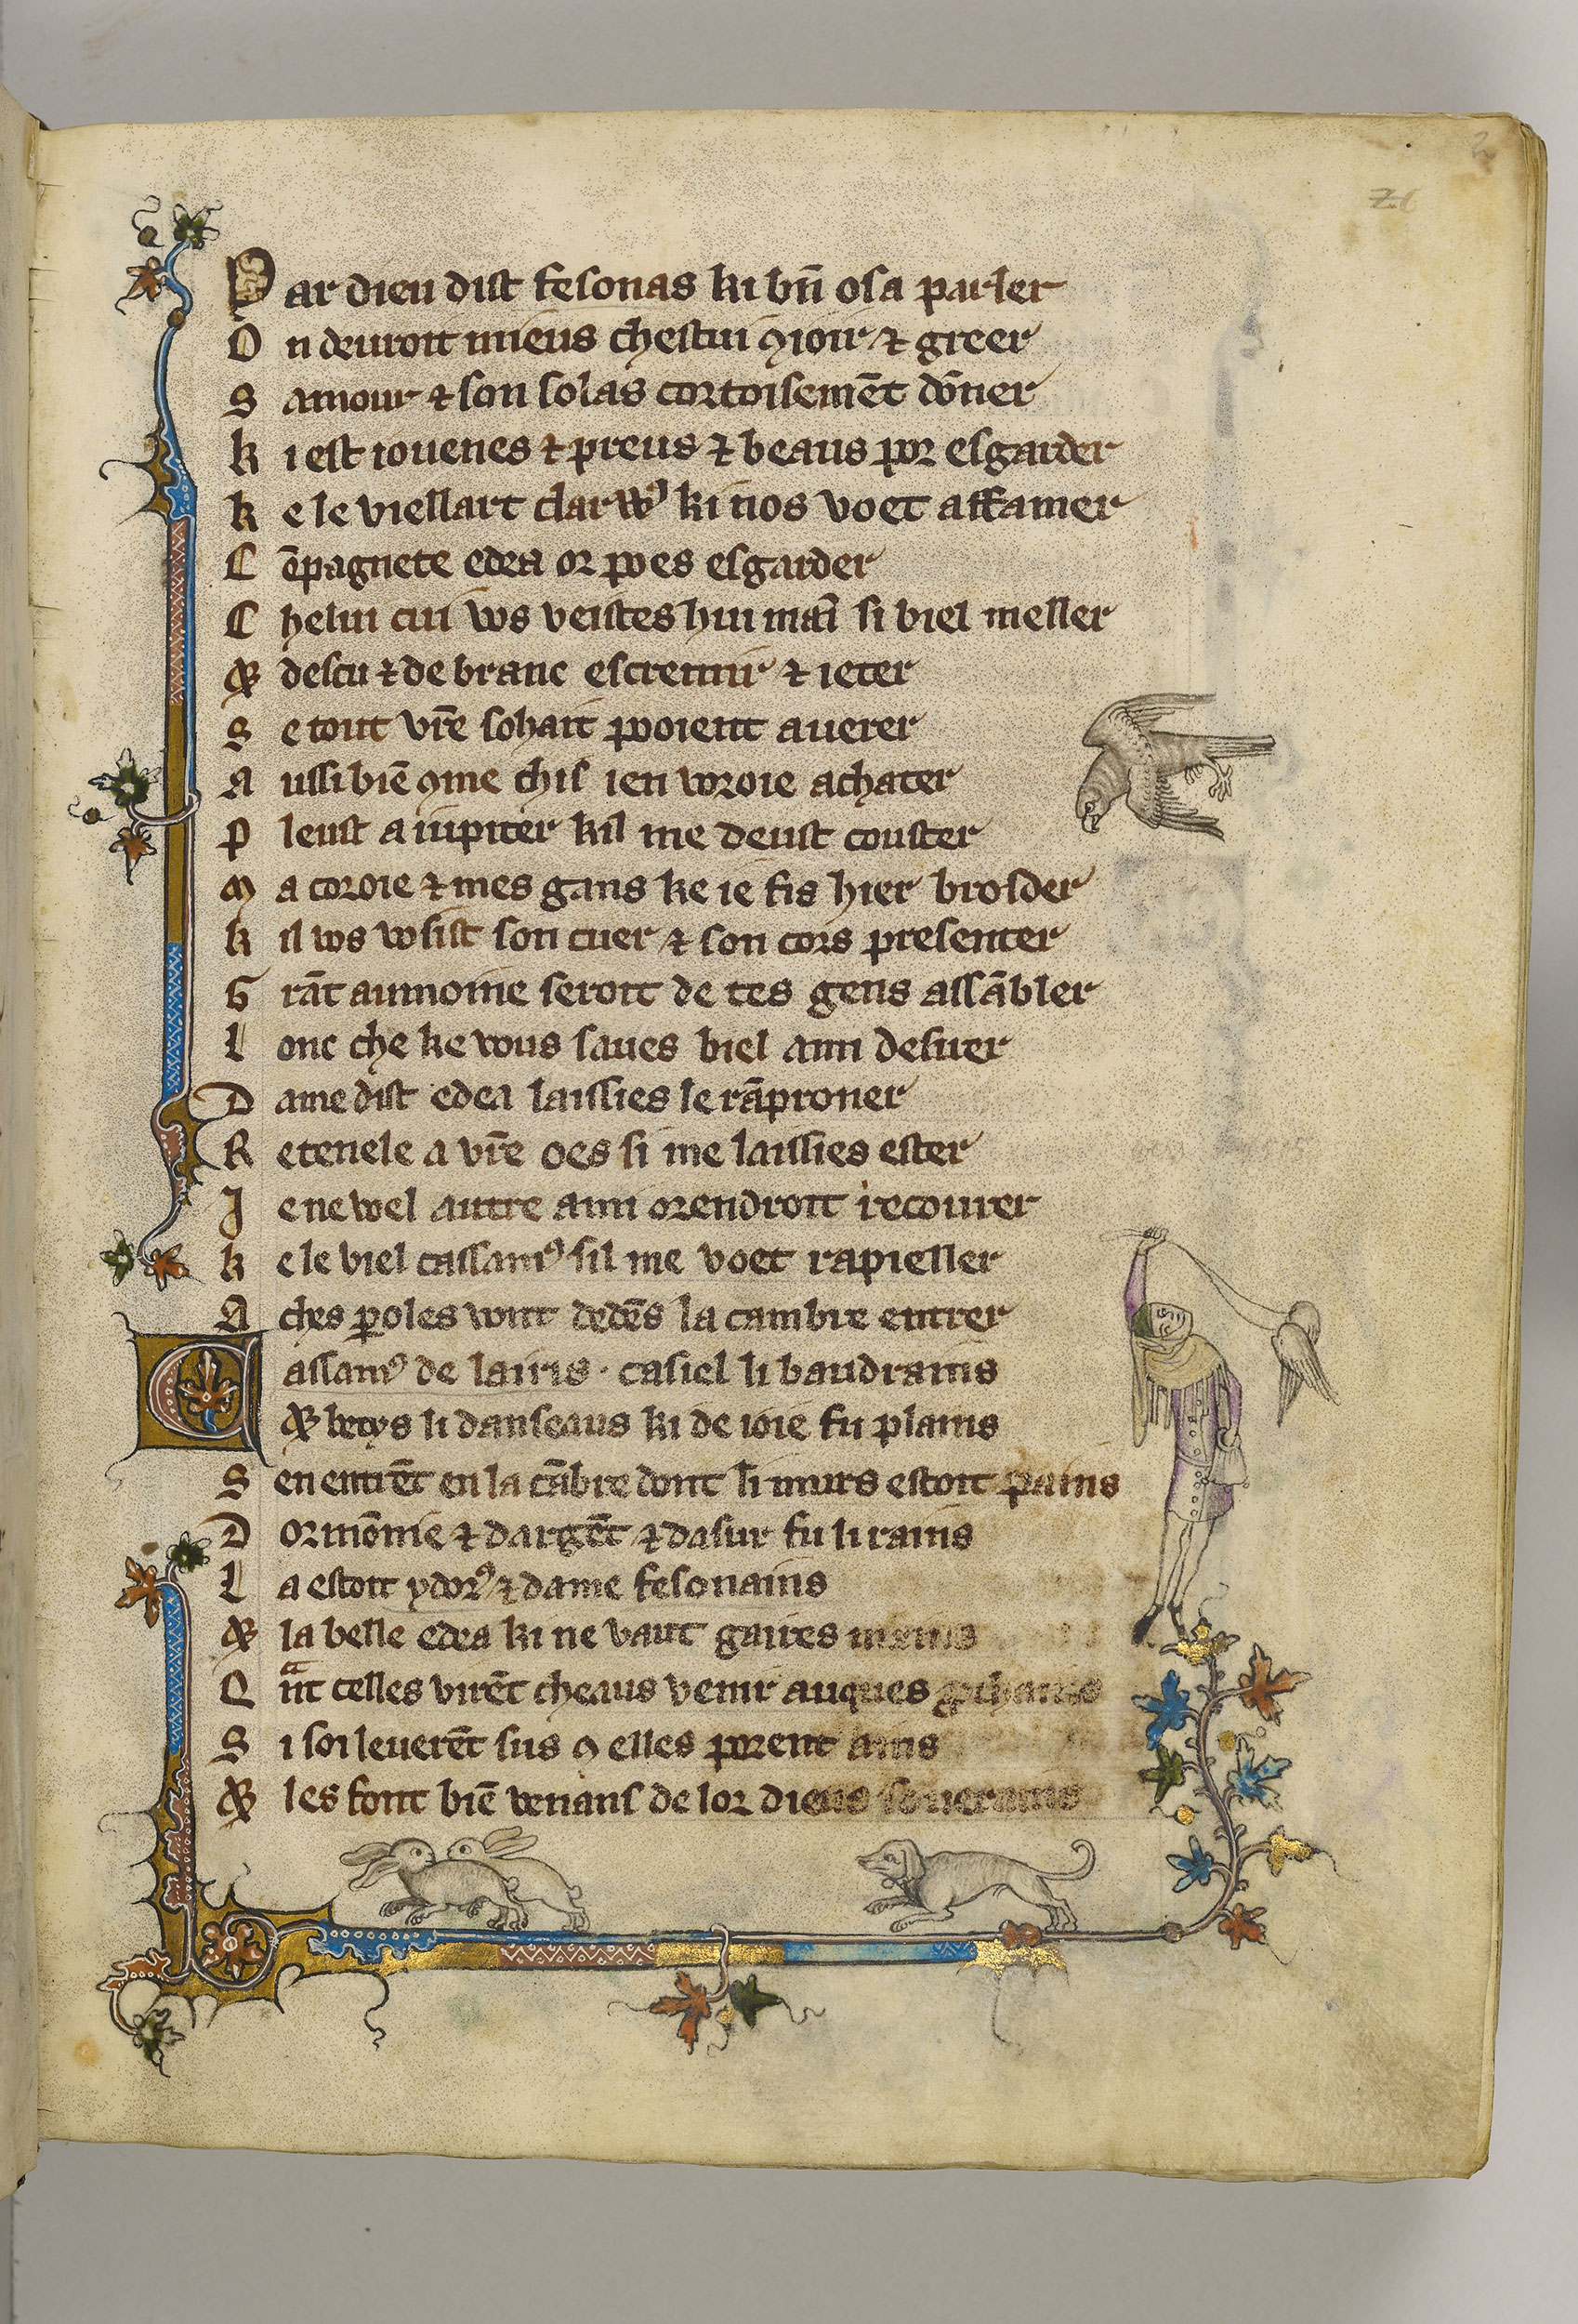 2
Par dieu dist fesonas ki bn̄ osa parler
On deuroit mieus chestui ꝯioir ⁊ greer
S amour ⁊ son solas cortoisemēt dōner
K i est iouenes ⁊ preus ⁊ beaus por esgarder
K e le viellart clarwꝰ ki nos voet affamer
C ōpagnete edea or poes esgarder
C helui cui vos veistes hui mai᷎n si biel meller
⁊ descu ⁊ de branc escremir ⁊ ieter
S e tout vr̄e sohait pooient auerer
A ussi biē ꝯme chis ien voroie achater
P leust a iupiter kil me deust couster
M a coroie ⁊ mes gans ke ie fis hier brosder
K il vos vosist son cuer ⁊ son cors presenter
G rāt aumoine seroit de tes gens assābler
L onc che ke vous saues biel ami desuer
D ame dist edea laissies le rāproner
R etenele a vr̄e oes si me laissies ester
J e ne voel autre ami orendroit recourer
K e le viel cassamꝰ sil me voet rapieller
A ches ꝑoles vont dedēs la cambre entrer
C assamꝰ de lairis · casiel li baudrains
⁊ betys li danseaus ki de ioie fu plains
S en entrēt en la cābre dont li murs estoit pains
D or mōnie ⁊ dargēt ⁊ dasur fu li rains
L a estoit ydorꝰ ⁊ dame fesonains
⁊ la belle edea ki ne vaut gaires mains
Q ᵃnt celles virēt cheaus venir auques
S i soi leuerēt sus ꝯ elles porent ains
⁊ les font biē venans de lor dieus souerains